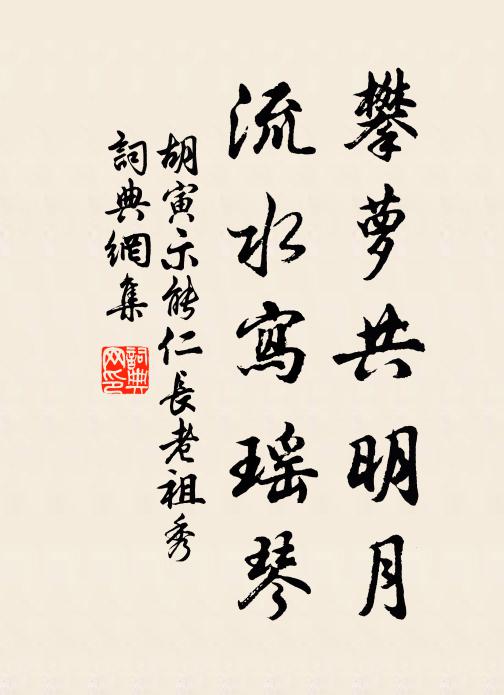 攀萝共明月
流水寫瑶琴
胡寅示能仁長老祖秀
詞典網集
詞典网印